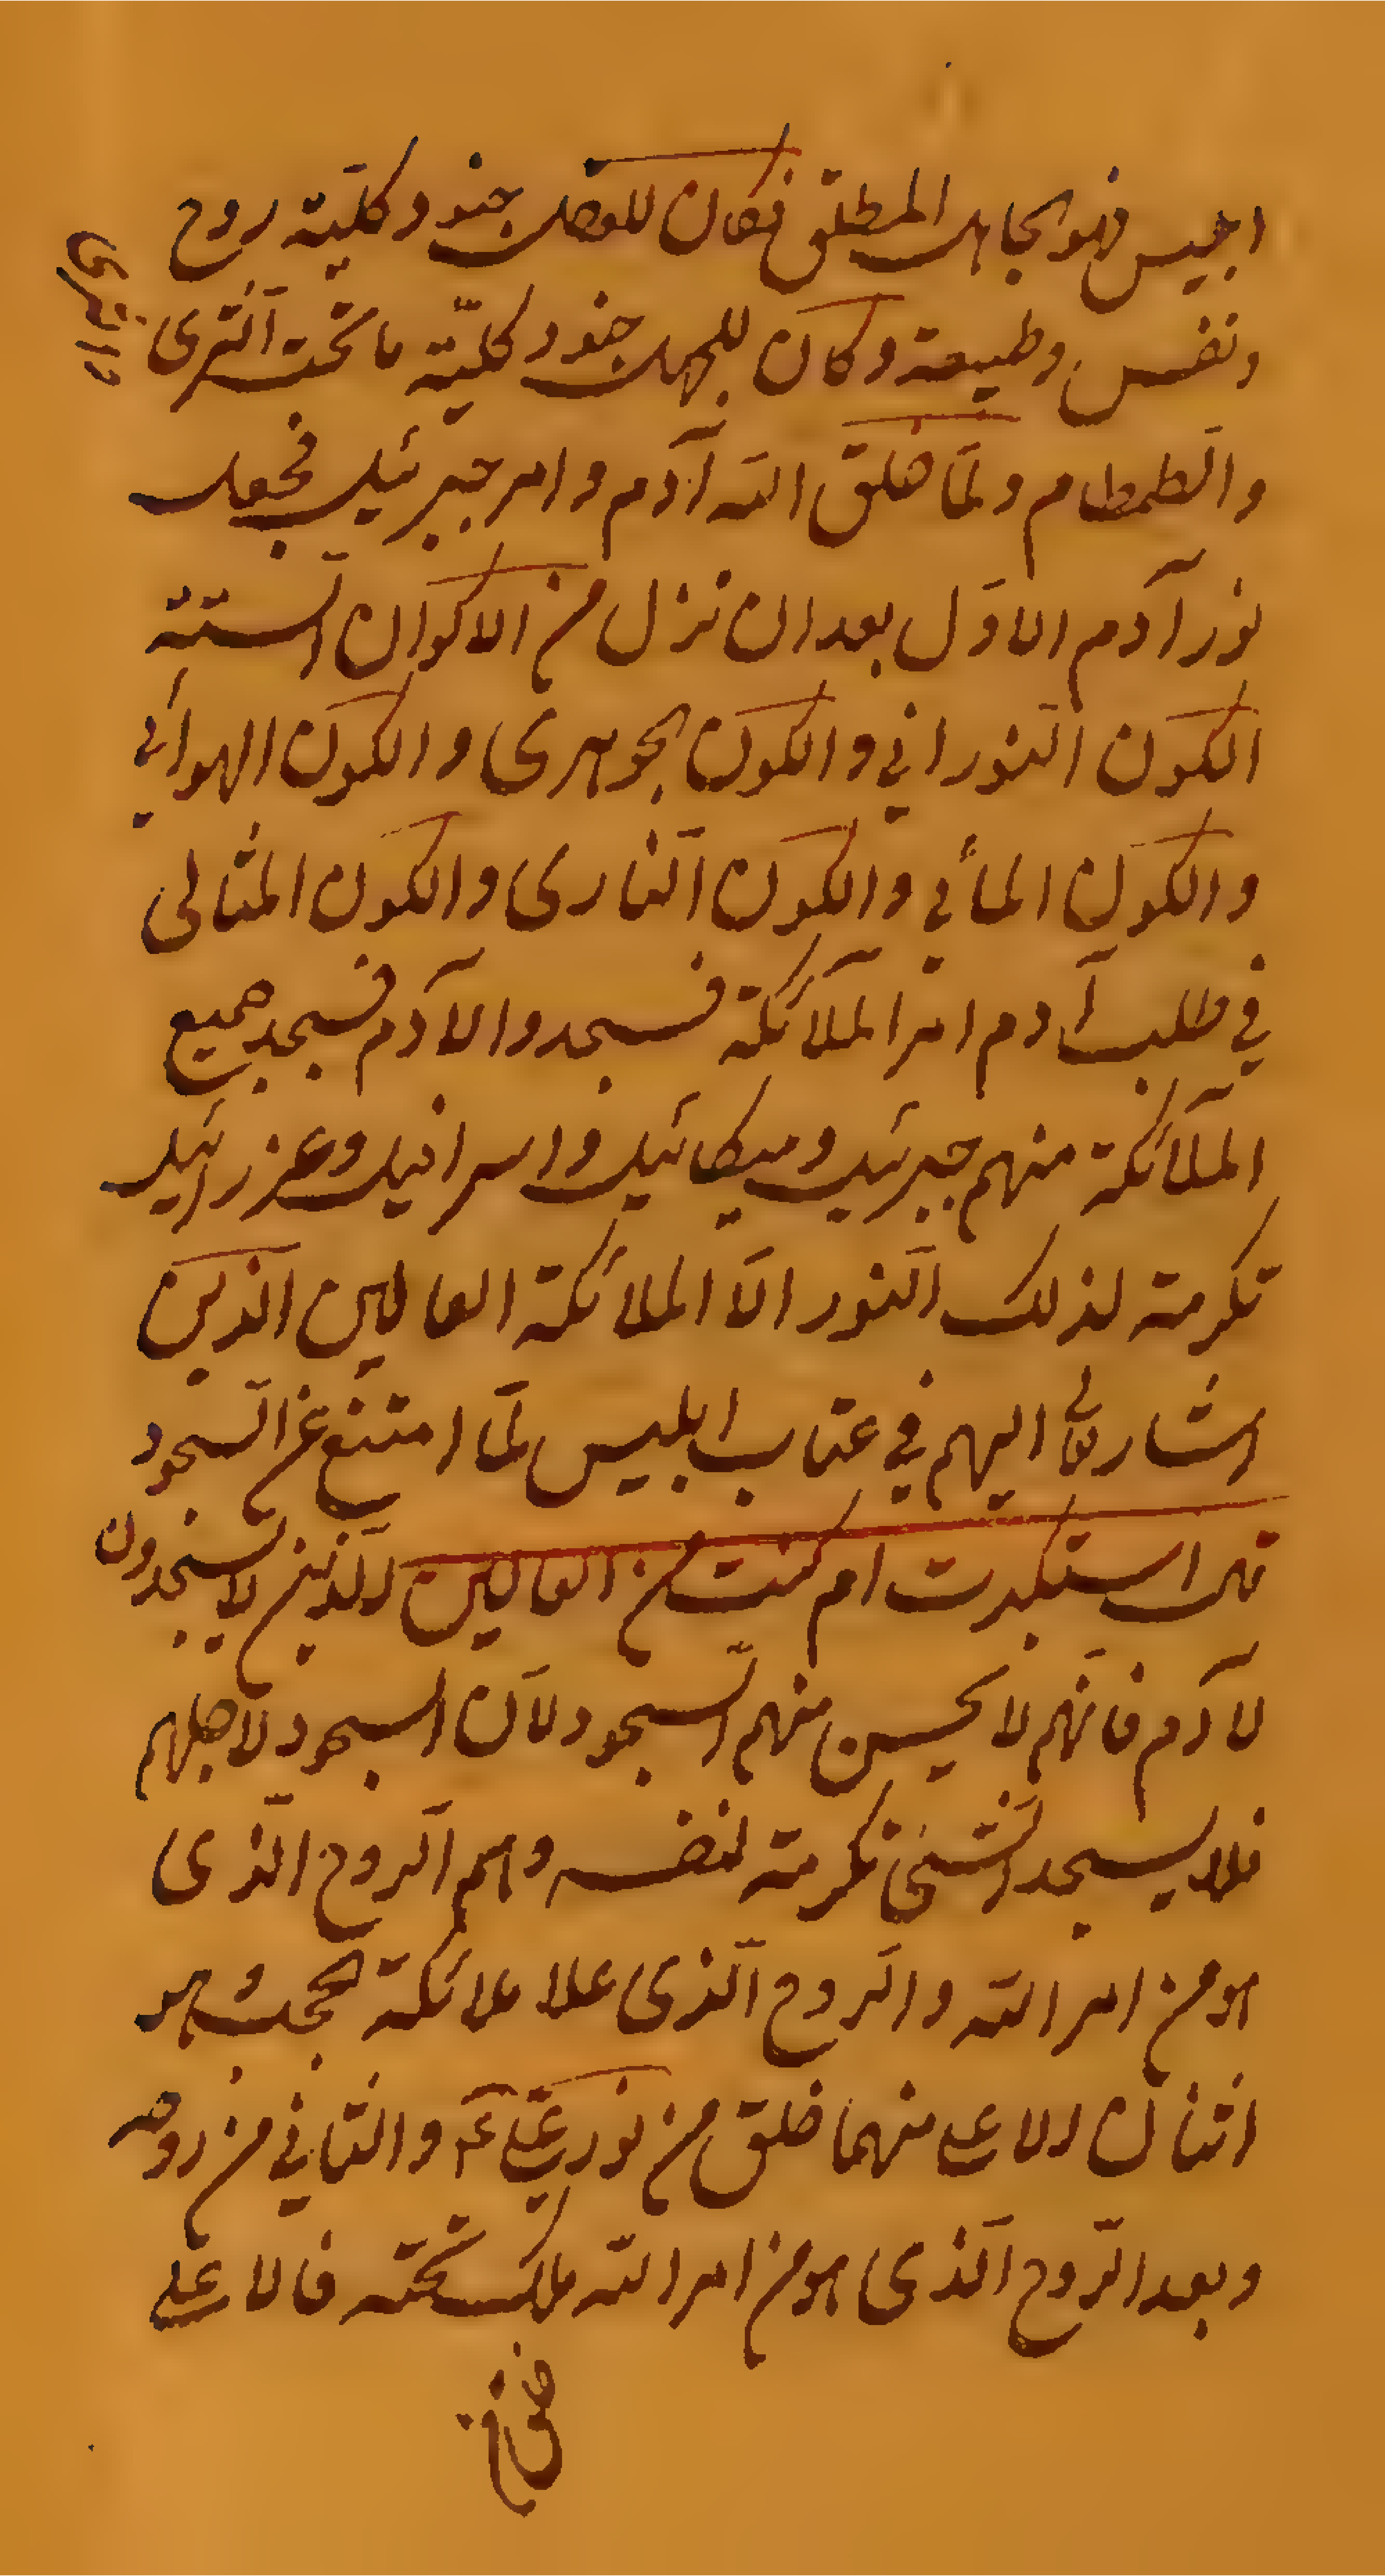 اجيس فهو الجاهل المطلق فكان للعقل جنود كليّة روح
ونفس وطبيعة وكان للجهل جنود كليّة ما تحت الثّرى
والثرى
والطمطام ولمّا خلق اللّه آدم وامر جبرئيل فجعل
نور آدم الاوّل بعد ان نزل من الاكوان السّتّة
الكون النّوراني والكون الجوهرى والكون الهوائي
والكون المائي والكون النّارى والكون المثالى
في طلب آدم امر الملآئكة فسجدوا لآدم فسجد جميع
الملآئكة منهم جبرئيل وميكائيل واسرافيل وعزرائيل
تكرمة لذلك النّور الّا الملائكة العالين الذين
اشار تعالى اليهم في عتاب ابليس لمّا امتنع عن السّجود
قال استكبرت ام كنت من العالين الّذين لا يسجدون
لآدم فانّهم لا يحسن منهم السّجود لانّ السجود لاجلهم
فلا يسجد الشئ تكرمة لنفسه وهم الرّوح الّذى
هو من امر اللّه والرّوح الّذى علا ملائكة الحجب وهو
اثنان الاعلى منهما خلق من نور والثاني من روحه
وبعد الرّوح الّذى هو من امر اللّه ملك تحته فالاعلى